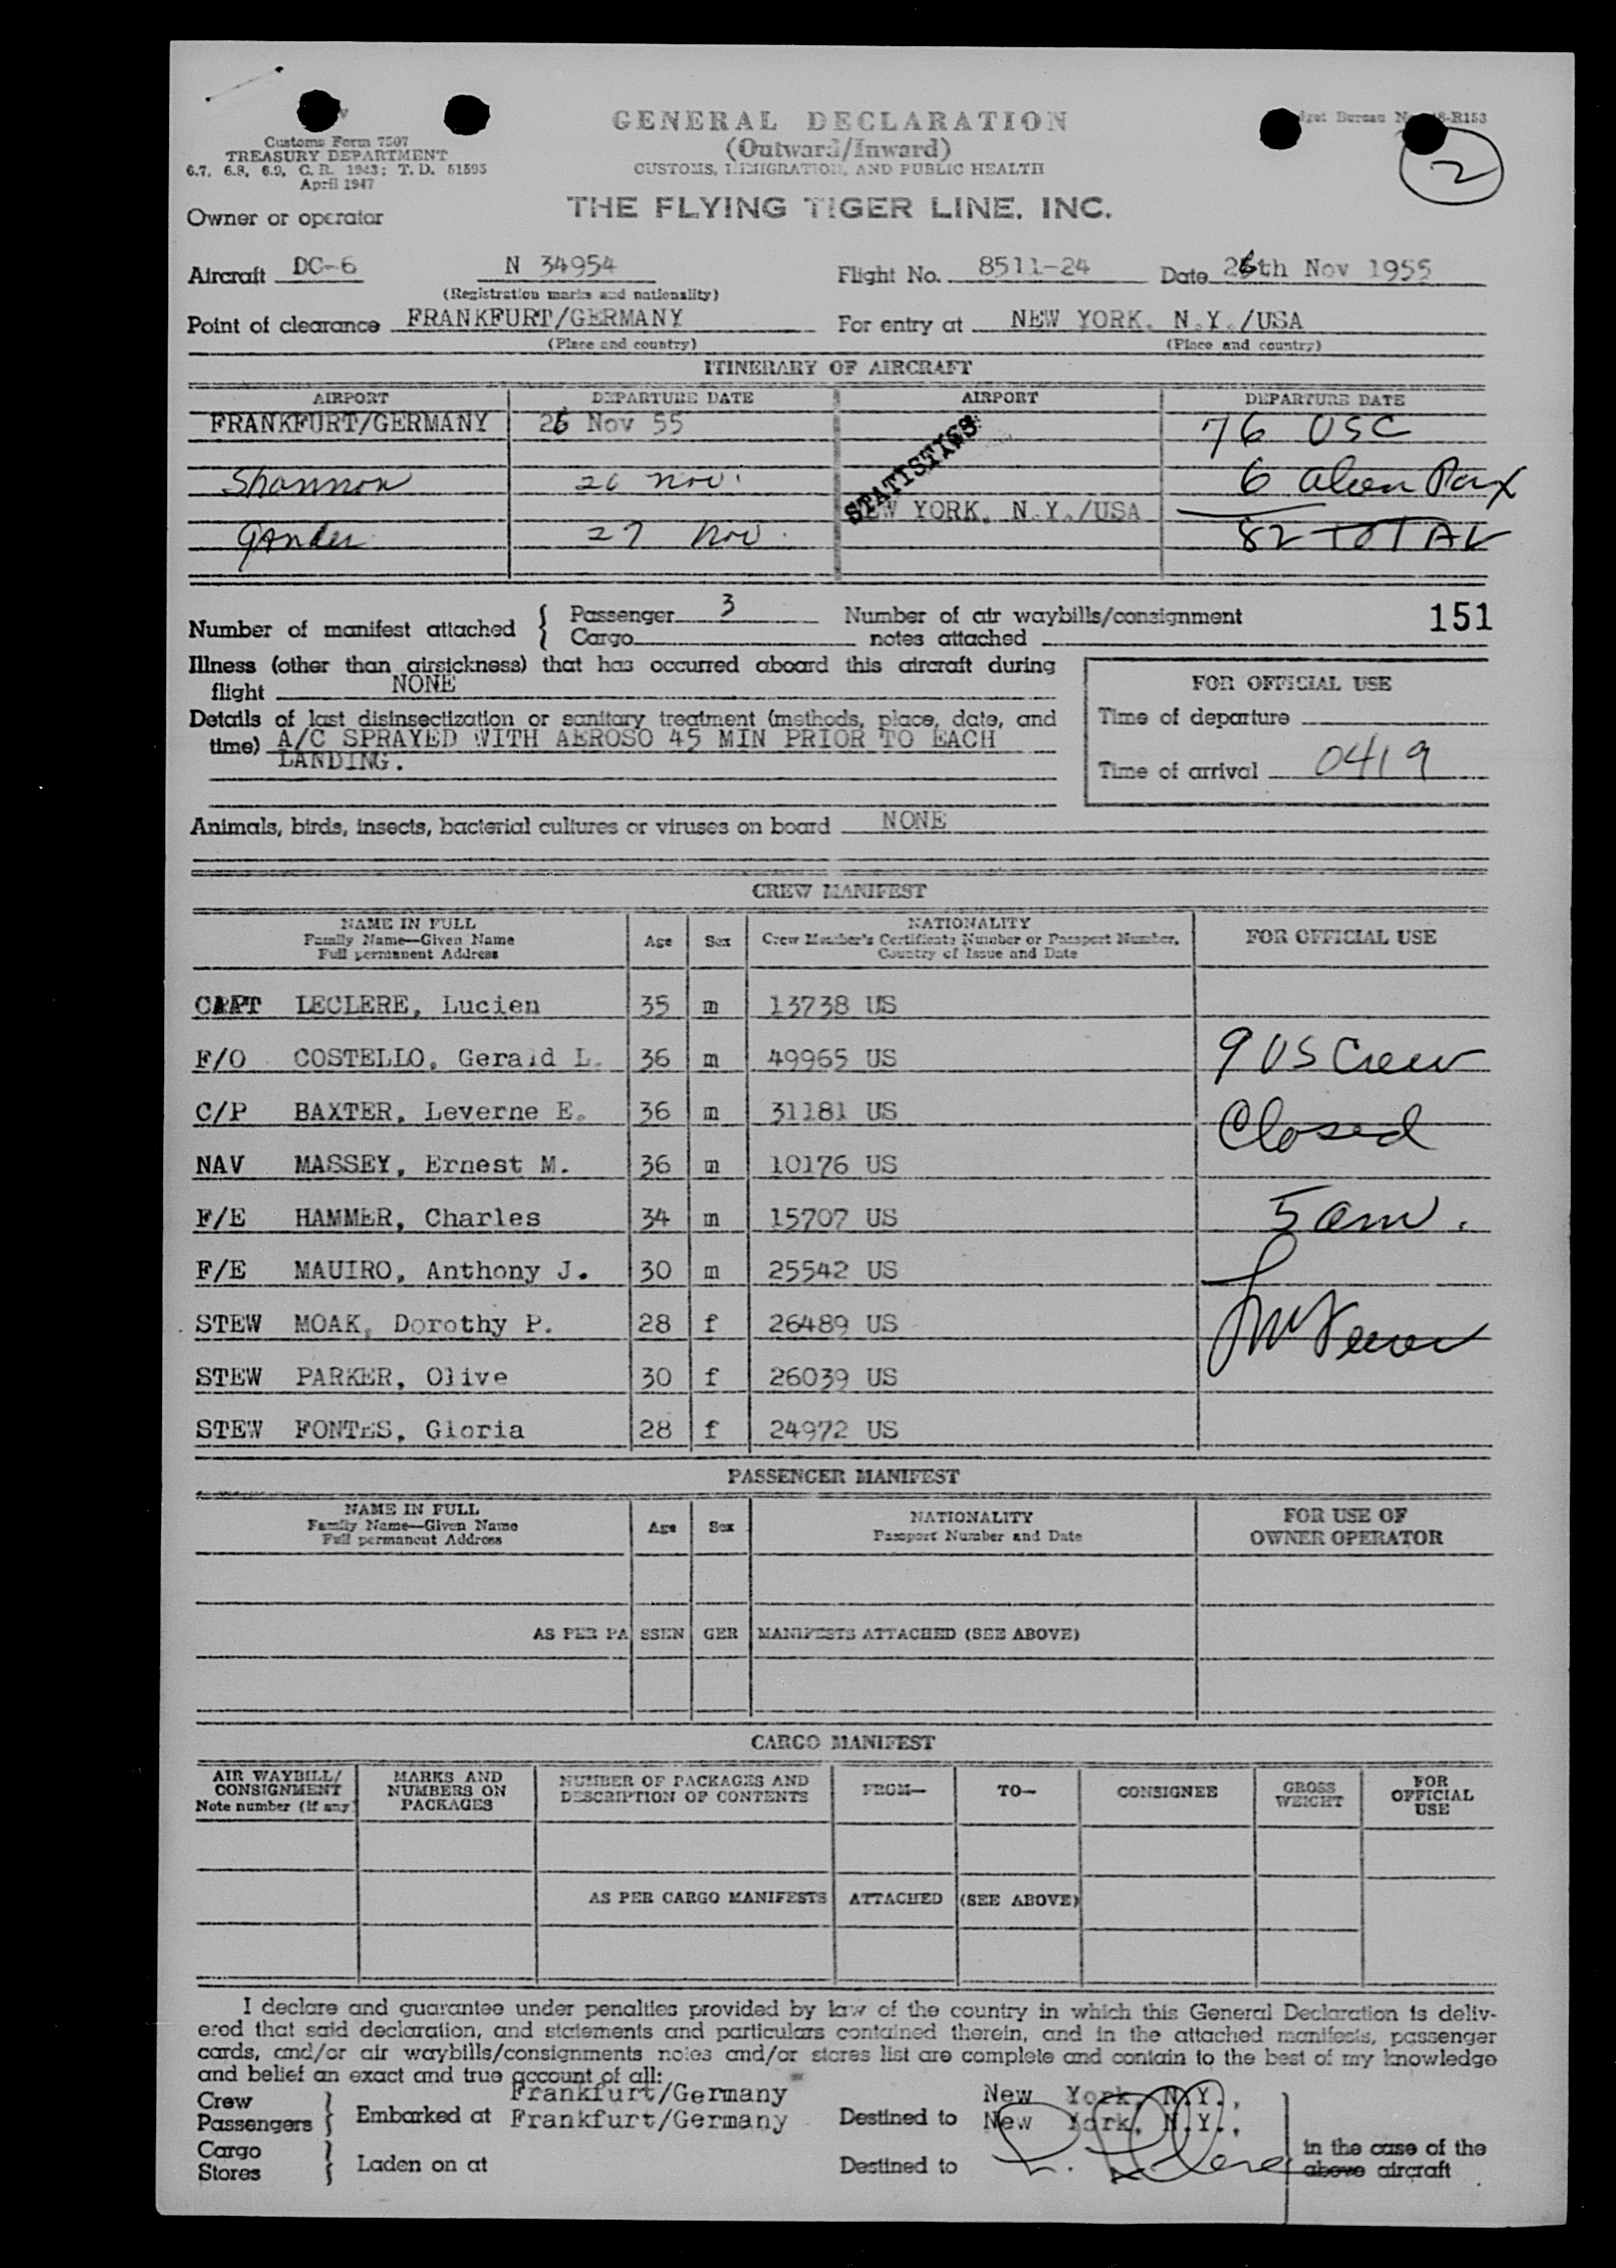 GENERAL DECLARATION
(Outward/Inward)
CUSTOMS, IMMIGRATION, AND PUBLIC HEALTH
Customs Form 7507
TREASURY DEPARTMENT
6.7, 6.8, 6.9, C. R. 1943; T. D. 51595
April 1947
Budget Bureau No. 48-R153
2
Owner or operator
THE FLYING TIGER LINE, INC.
Aircraft DC-6 N 34954 Flight No. 8511-24 Date 26th Nov 1955
(Registration marks and nationality)
Point of clearance FRANKFURT/GERMANY For entry at NEW YORK, N.Y./USA
(Place and country) (Place and country)
ITINERARY OF AIRCRAFT
AIRPORT DEPARTURE DATE AIRPORT DEPARTURE DATE
FRANKFURT/GERMANY 26 Nov 55 76 USC
STATISTICS
Shannon 26 Nov. 6 alien Pax
NEW YORK, N.Y./USA
Gander 27 Nov. 82 TOTAL
Number of manifest attached { Passenger 3 Number of air waybills/consignment 151
Cargo notes attached
Illness (other than airsickness) that has occurred aboard this aircraft during
flight NONE
FOR OFFICIAL USE
Details of last disinsectization or sanitary treatment (methods, place, date, and
time) A/C SPRAYED WITH AEROSO 45 MIN PRIOR TO EACH
LANDING.
Time of departure
Time of arrival 0419
Animals, birds, insects, bacterial cultures or viruses on board NONE
CREW MANIFEST
NAME IN FULL
Family Name—Given Name
Full permanent Address
Age Sex
NATIONALITY
Crew Member's Certificate Number or Passport Number,
Country of Issue and Date
FOR OFFICIAL USE
CAPT LECLERE, Lucien 35 m 13738 US
F/O COSTELLO, Gerald L. 36 m 49965 US 9 US Crew
C/P BAXTER, Leverne E. 36 m 31181 US Closed
NAV MASSEY, Ernest M. 36 m 10176 US
F/E HAMMER, Charles 34 m 15707 US 5 am.
F/E MAUIRO, Anthony J. 30 m 25542 US
STEW MOAK, Dorothy P. 28 f 26489 US
STEW PARKER, Olive 30 f 26039 US
STEW FONTES, Gloria 28 f 24972 US
PASSENGER MANIFEST
NAME IN FULL
Family Name—Given Name
Full permanent Address
Age Sex
NATIONALITY
Passport Number and Date
FOR USE OF
OWNER OPERATOR
AS PER PA SSEN GER MANIFESTS ATTACHED (SEE ABOVE)
CARGO MANIFEST
AIR WAYBILL/
CONSIGNMENT
Note number (if any)
MARKS AND
NUMBERS ON
PACKAGES
NUMBER OF PACKAGES AND
DESCRIPTION OF CONTENTS
FROM—
TO—
CONSIGNEE
GROSS
WEIGHT
FOR
OFFICIAL
USE
AS PER CARGO MANIFESTS ATTACHED (SEE ABOVE)
I declare and guarantee under penalties provided by law of the country in which this General Declaration is deliv-
ered that said declaration, and statements and particulars contained therein, and in the attached manifests, passenger
cards, and/or air waybills/consignments notes and/or stores list are complete and contain to the best of my knowledge
and belief an exact and true account of all:
Crew Frankfurt/Germany New York, N.Y.,
Passengers } Embarked at Frankfurt/Germany Destined to New York, N.Y.,
Cargo
Stores } Laden on at Destined to
in the case of the
above aircraft